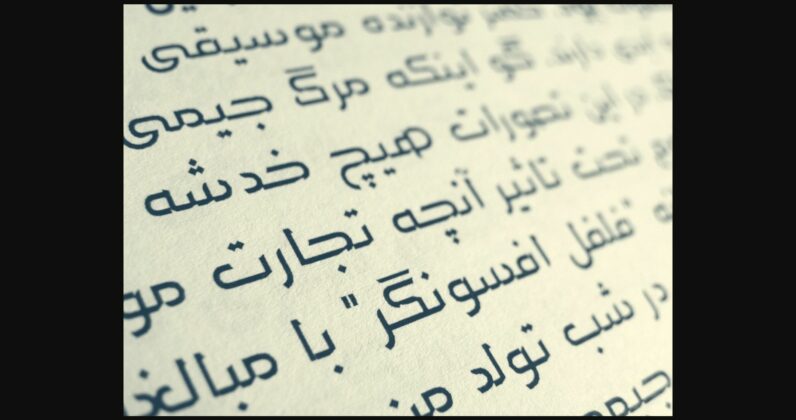 نوازنده موسیقی
دارند. گو اینکه مرگ جیمی
در این تصورات هیچ خدشه
تحت تاثیر آنچه تجارت مو
"فلفل افسونگر" با
در شب تولد من
جیمی